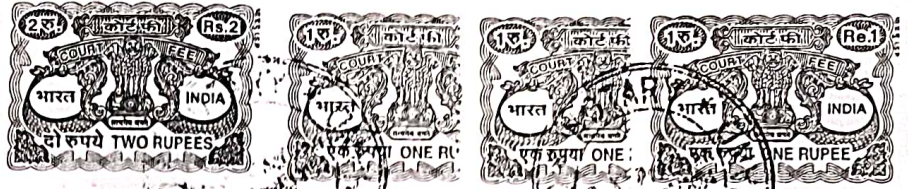 2 रु. कोर्ट फी Rs.2
COURT FEE
भारत INDIA
सत्यमेव जयते
दो रुपये TWO RUPEES
1 रु. कोर्ट फी
COURT
भारत
सत्यमेव जयते
एक रुपया ONE RU
1 रु. कोर्ट फी
COURT
भारत
एक रुपया ONE
1 रु. कोर्ट फी Re.1
COURT FEE
भारत INDIA
सत्यमेव जयते
एक रुपया ONE RUPEE